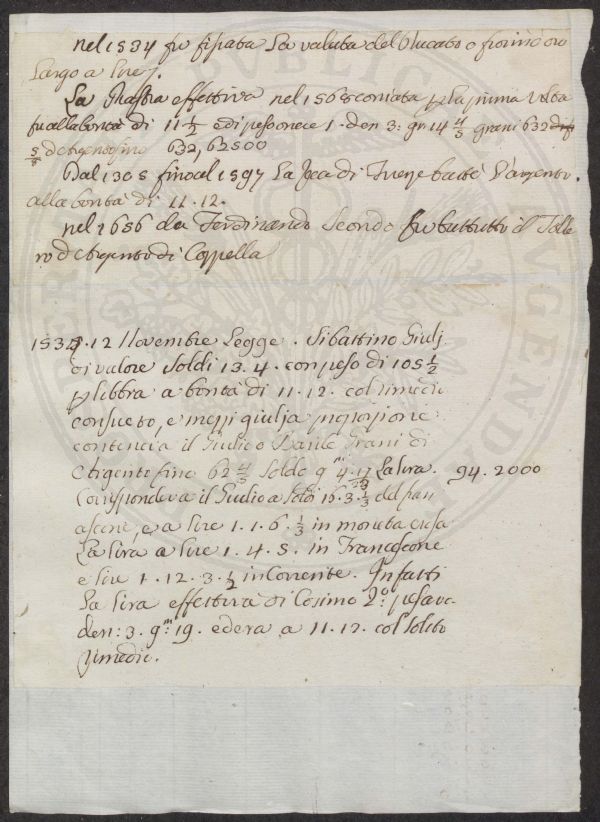 nel 1534 fu fissata La valuta del Ducato o fiorino oro
Largo a lire 7.
La Piastra effettiva nel 1568 coniata p la prima Volta
fu alla bontà di 11 1/2 e di peso once 1. den 3: gr 14 4/5 grani 632
5/8 d'Argento fino 632,62500
Dal 1305 fino al 1597 La Zecca di Firenze battè d'argento.
alla bontà di 11.12.
nel 1656 da Ferdinando Secondo fu battutto il Tolle
ro d'Argento di Coppella
1534.12 Novembre Legge. Si battino Giulj
di valore Soldi 13.4. con peso di 105 1/2
p libbra a bontà di 11.12. col rimedio
consueto, e mezzi giulj a proporzione
conteneva il Giulio o Barile Grani di
Argento fino 62 4/5 Soldo gni 4. La lira. 94.2000
Corrispondeva il Giulio a Soldi 16.3.1/3 del
e a lire 1.1.6.1/3 in moneta erosa
La lira a lire 1.4.5. in Francescone
e lire 1.12.3.1/2 in Corrente. Infatti
La lira effettiva di Cosimo 2.o pesava
den: 3. gni 19. ed era a 11.12. col solito
rimedio.